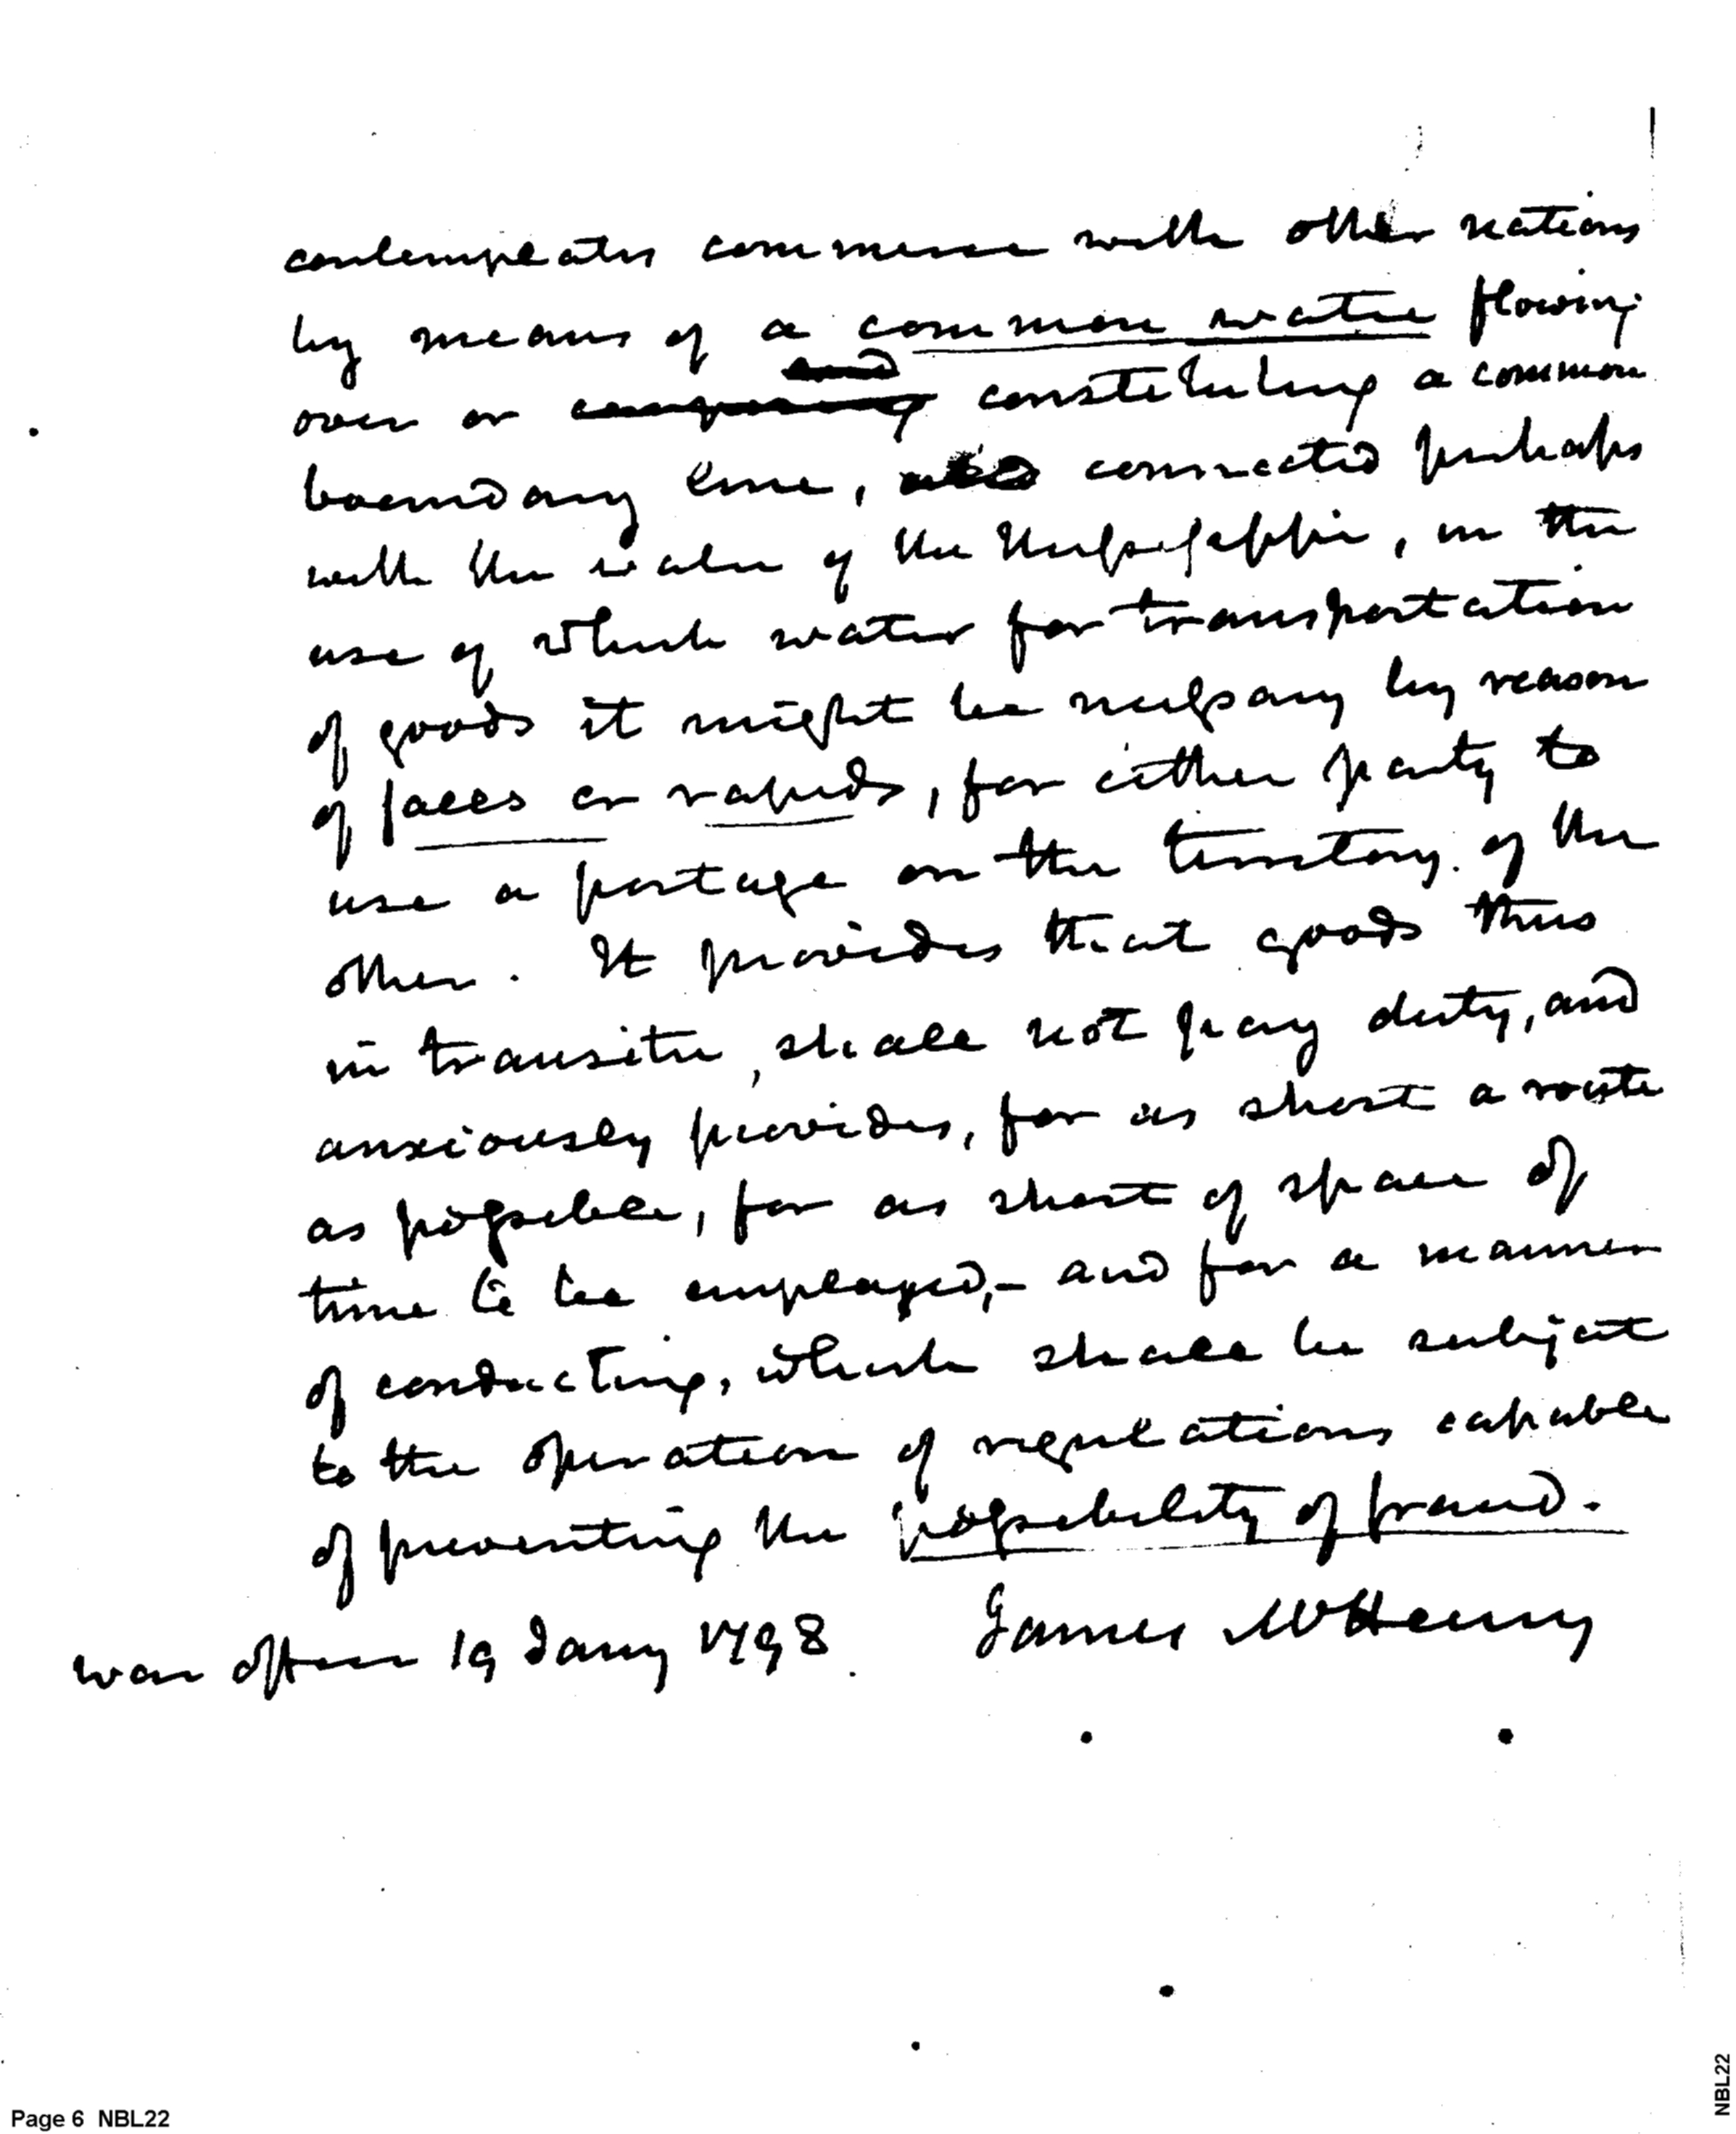 contemplates commerce with other nations
by means of a common water flowing
and
over or composing constituting a common
boundary line, connected perhaps
with the water of the Mississippi, in the
use of which water for transportation
of goods it might be necessary by reason
of falls or rapids, for either party to
use a portage on the territory of the
other. It provides that goods thus
in transitu, shall not pay duty, and
anxiously provides, for as short a route
as possible, for as short of space of
time to be employed,- and for a manner
of conducting, which shall be subject
to the operation of regulations capable
of preventing the possibility of fraud.
James McHenry
war office 19 Jany 1798.
Page 6 NBL22
NBL22